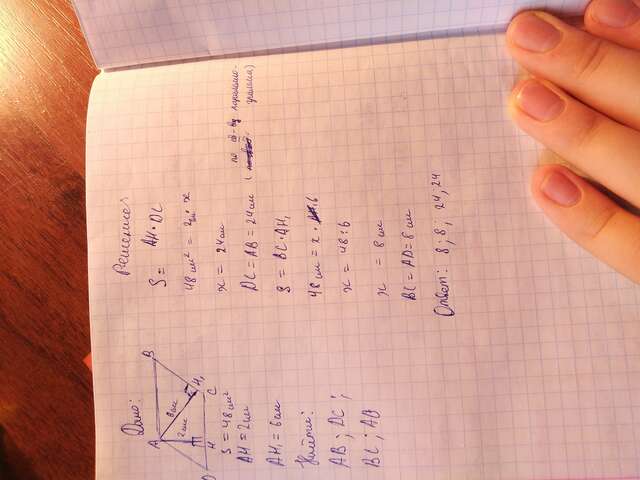 Дано:
A
B
6см
2см
D
H
C
H₁
S = 48см²
AH = 2см
AH₁ = 6см
Найти:
AB; DC;
BC; AD
Решение
S = AH·DC
48см² = 2см·x
x = 24см
DC = AB = 24см (по св-ву параллелограмма)
S = BC·AH₁
48см = x·6
x = 48:6
x = 8см
BC = AD = 8см
Ответ: 8; 8; 24, 24